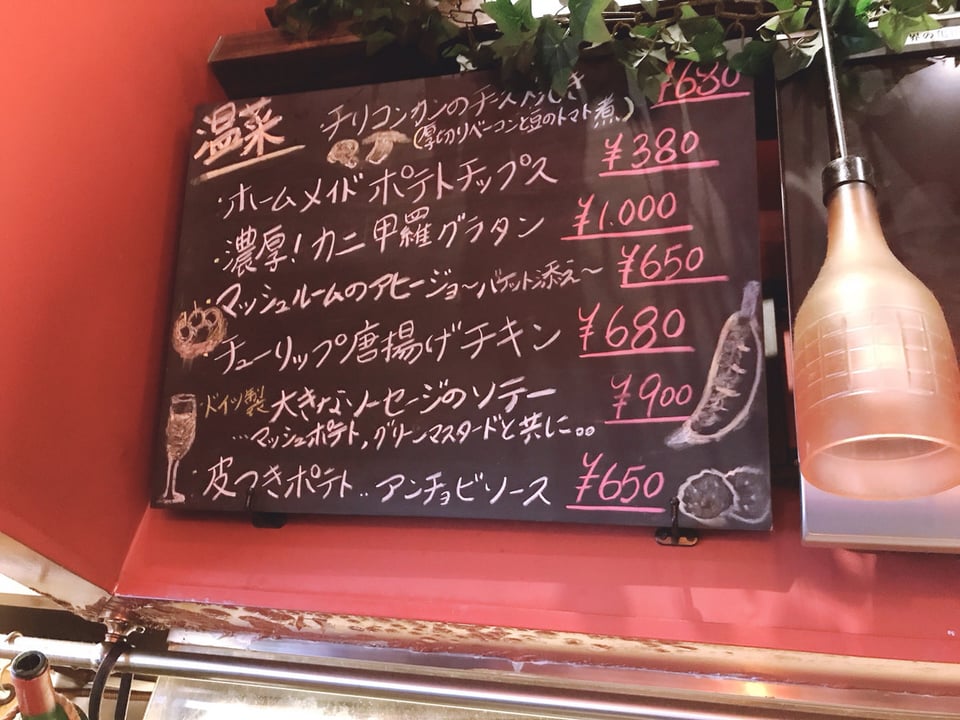 温菜
・チリコンカンのチーズ焼き ¥680
(厚切りベーコンと豆のトマト煮)
・ホームメイドポテトチップス ¥380
・濃厚!カニ甲羅グラタン ¥1.000
・マッシュルームのアヒージョ〜バケット添え〜 ¥650
・チューリップ唐揚げチキン ¥680
・ドイツ製 大きなソーセージのソテー ¥900
…マッシュポテト,グリーンマスタードと共に。。
・皮つきポテト‥アンチョビソース ¥650